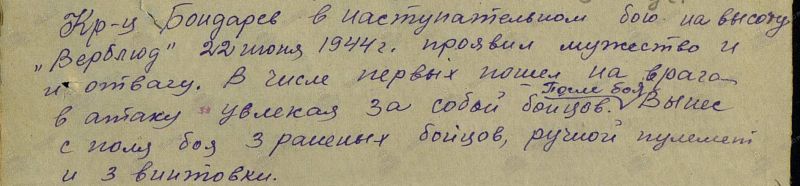 Кр-ц Бондарев в наступательном бою на высоту
"Верблюд" 22 июня 1944 г. проявил мужество и
и отвагу. В числе первых пошел на врага
в атаку увлекая за собой бойцов. После боя Вынес
с поля боя 3 раненых бойцов, ручной пулемет
и 3 винтовки.